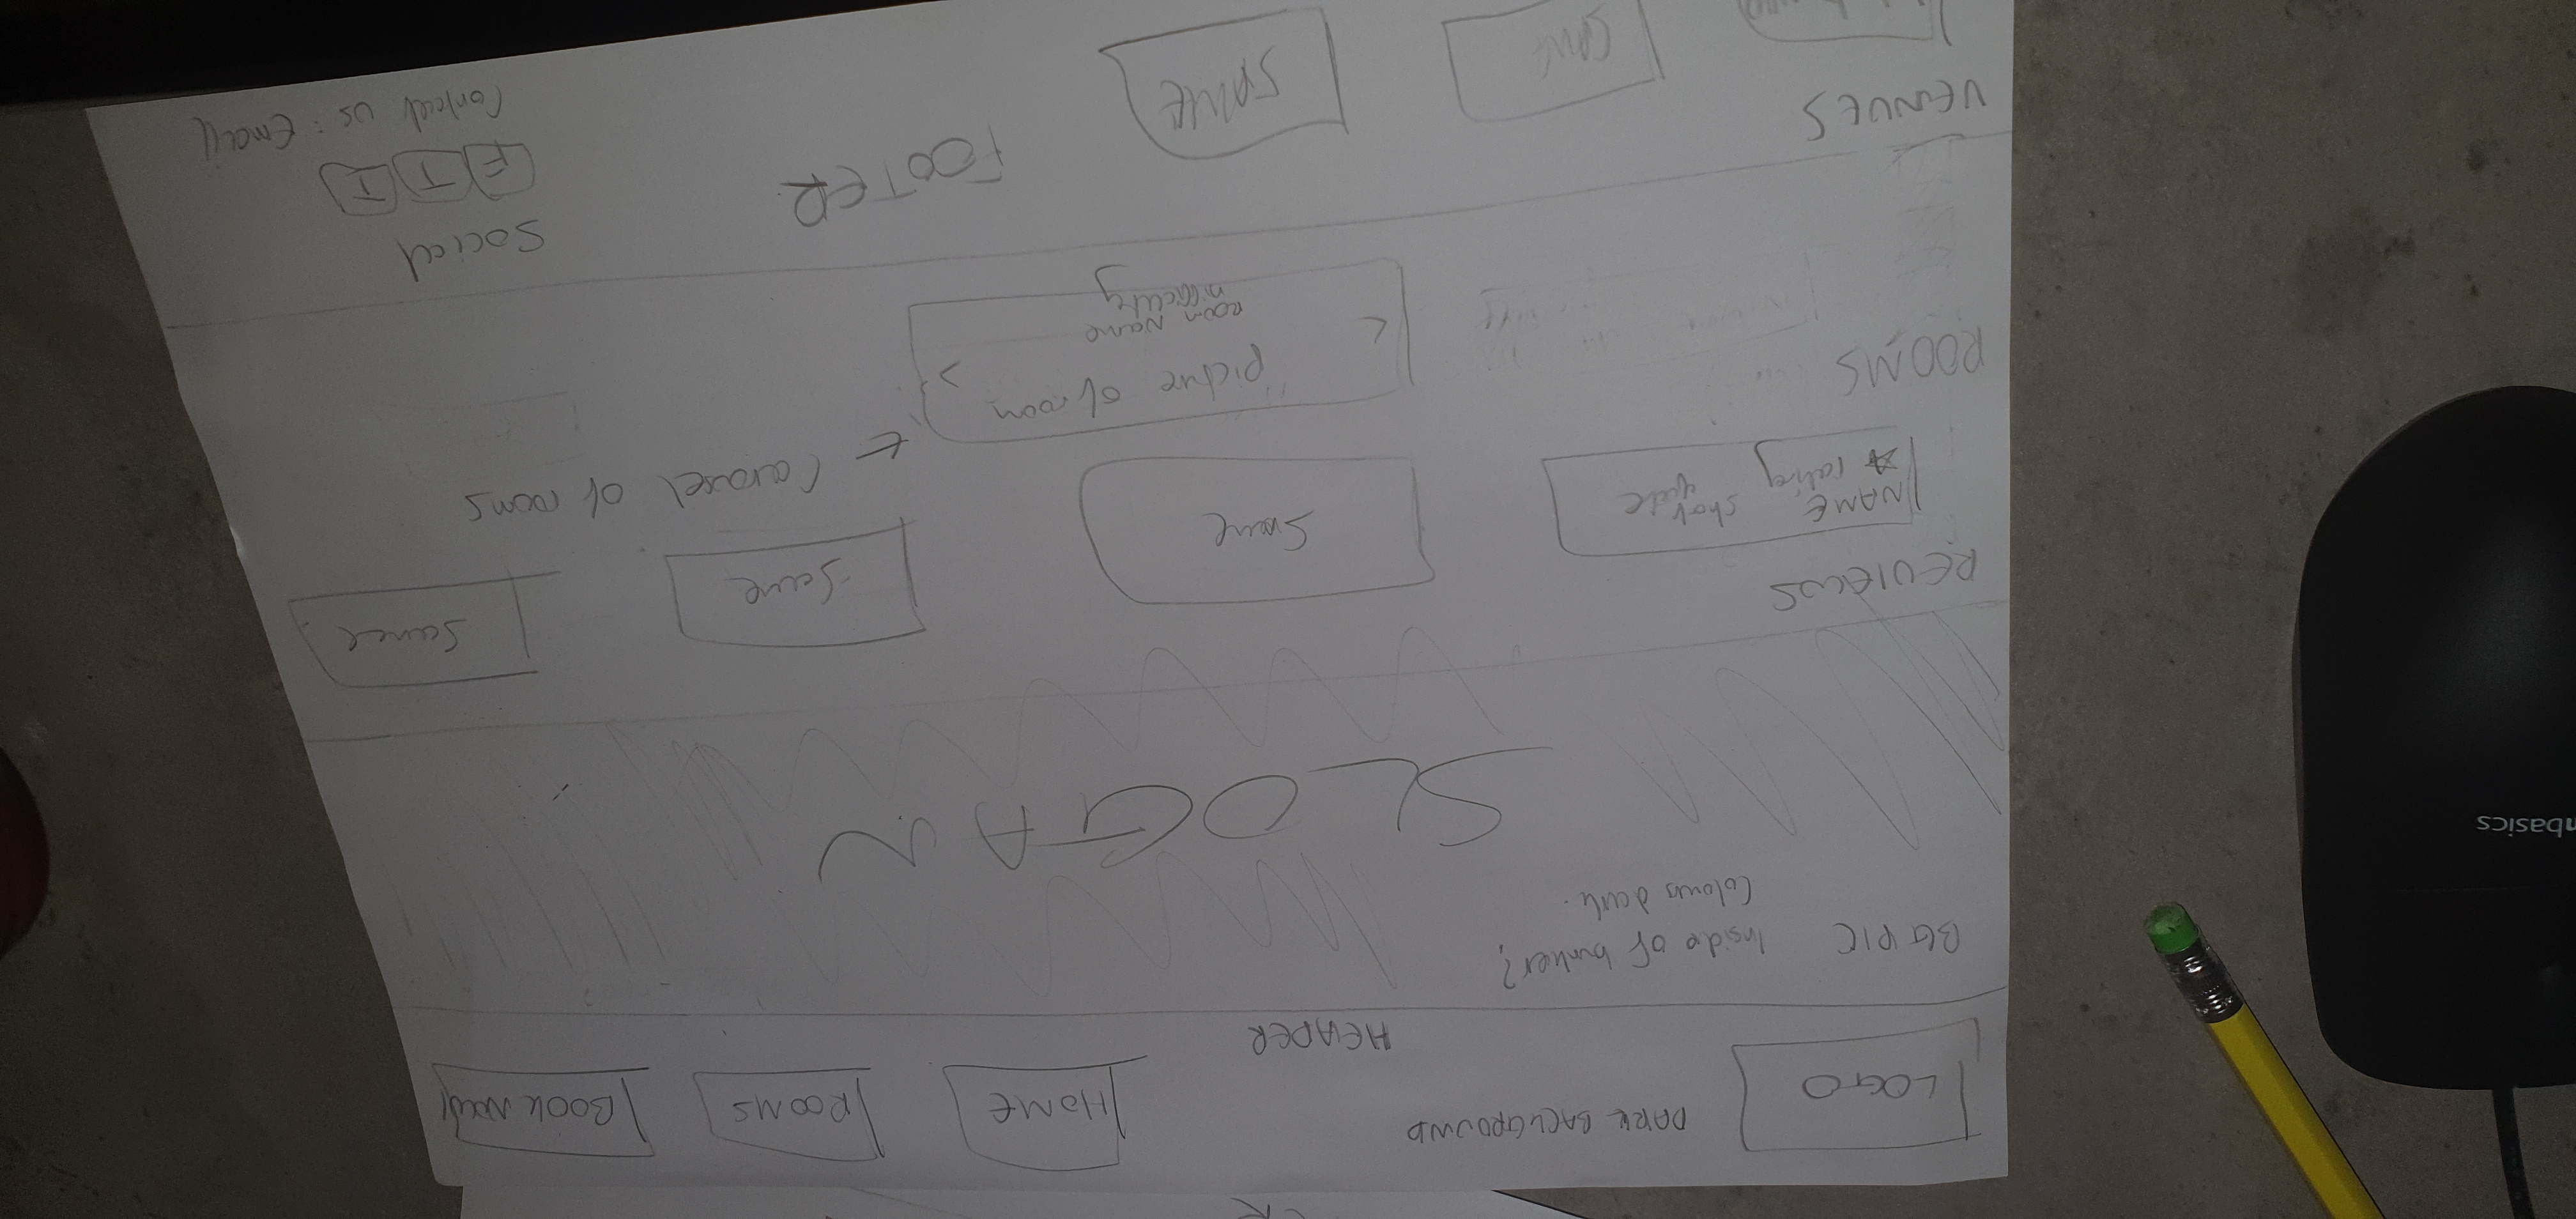 LOGO
DARK BACKGROUND
HOME
ROOMS
BOOK NOW
HEADER
BG PIC
Inside of bunker?
Colours dark.
SLOGAN
REVIEWS
NAME
rating
short
quote
Same
Same
Same
Carasel of rooms
ROOMS
picture of room
<
>
ROOM Name
Difficulty
FOOTER
Social
F
T
I
Contact us: Email
VENUES
SAME
SAME
basics